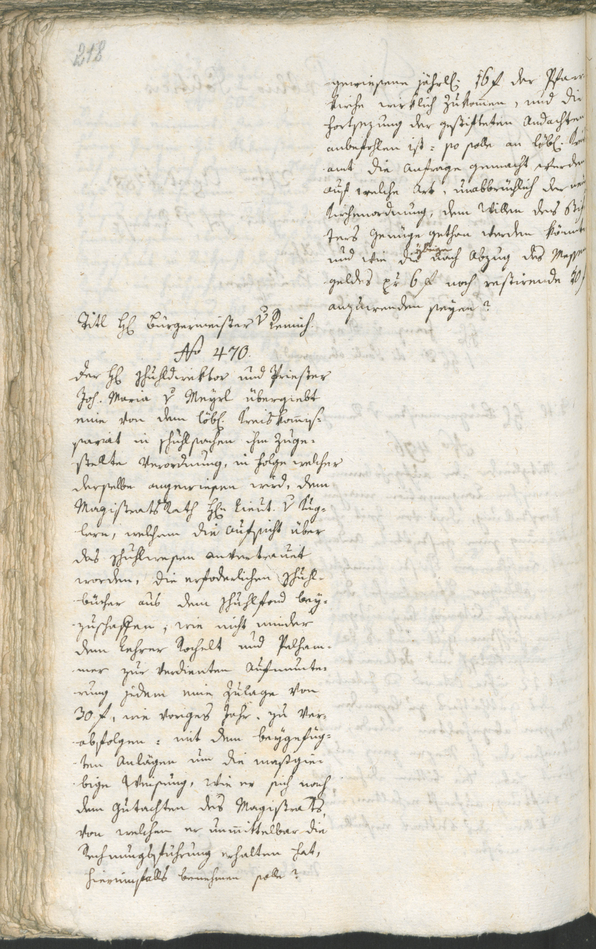 218
gewiesene jährll. 16 f der Pfarr
kirche wirklich zukomen, und die
fortsezung der gestifteten Andachten
anbefohlen ist: so solle an löbl. Kreis
amt die Anfrage gemacht werden
auf welche Art, unabbrüchlich der neuen
Kirchenordnung, dem Willen des Stif
ters Genüge gethan werden könnte
und wie die nach Abzug des Messen
geldes pr 6 f noch restirende 10 f
anzuwenden seyen?
Titl Hl. Bürgermeister v
No 470.
Der Hl. Schuldirektor und Priester
Joh. Maria v Mayrl übergiebt
eine von dem löbl. Kreiskommis-
sariat in Schulsachen ihm zuge-
stellte Verordnung, in Folge welcher
derselbe angewiesen wird, dem
Magistrats Rath Hl. Lieut. v
welchem die Aufsicht über
das Schuhlwesen anvertrauet
worden, die erforderlichen Schuhl-
bücher aus dem Schuhlfond bey-
zuschaffen, wie nicht minder
dem Lehrer und
zur verdienten Aufmunte-
rung jedem eine Zulage von
30 f, wie voriges Jahr, zu ver-
abfolgen: mit dem beygefüg-
ten Anlagen um die maßgie-
bige Weisung, wie er sich nach
dem Gutachten des Magistrats
von welchem er unmittelbar die
Rechnungsführung erhalten hat,
hierinfalls benehmen solle?